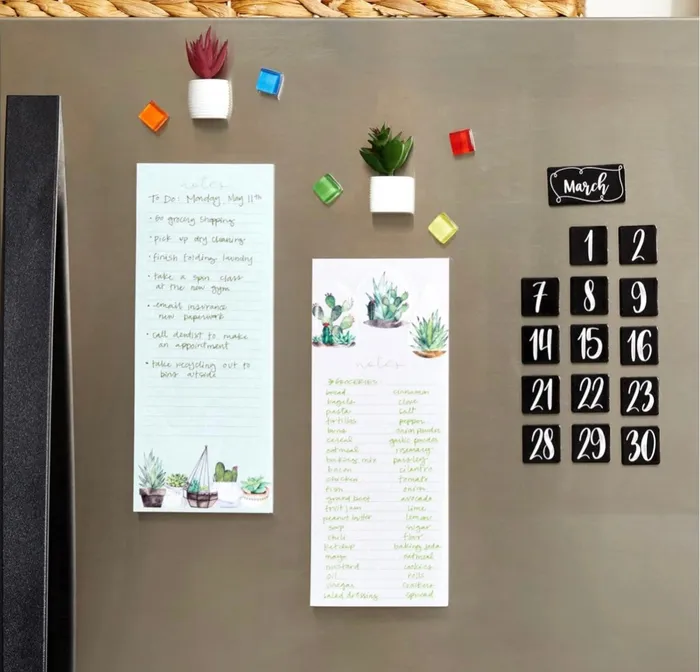 notes
To Do: Monday, May 11th
• Go grocery shopping
• pick up dry cleaning
• finish folding laundry
• take a spin class
at the new gym
• email insurance
new paperwork
• call dentist to make
an appointment
• take recycling out to
bins outside
notes
GROCERIES
bread
bagels
pasta
tortillas
cereal
oatmeal
baking mix
bacon
chicken
ground beef
fruit jam
peanut butter
soup
chili
ketchup
mayo
mustard
oil
vinegar
salad dressing
cinnamon
clove
salt
peppers
onion powder
garlic powder
rosemary
parsley
cilantro
tomato
onion
avocado
lime
lemon
sugar
flour
baking soda
oatmeal
cookies
crackers
spread
March
1 2
7 8 9
14 15 16
21 22 23
28 29 30